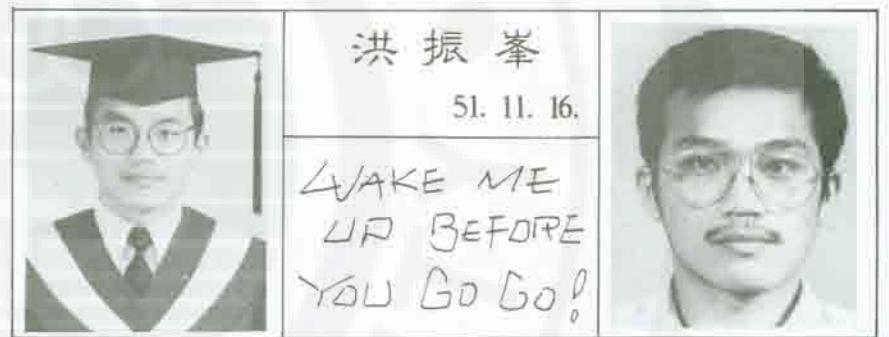 洪振峯
51. 11. 16.
WAKE ME
UP BEFORE
YOU GO GO!